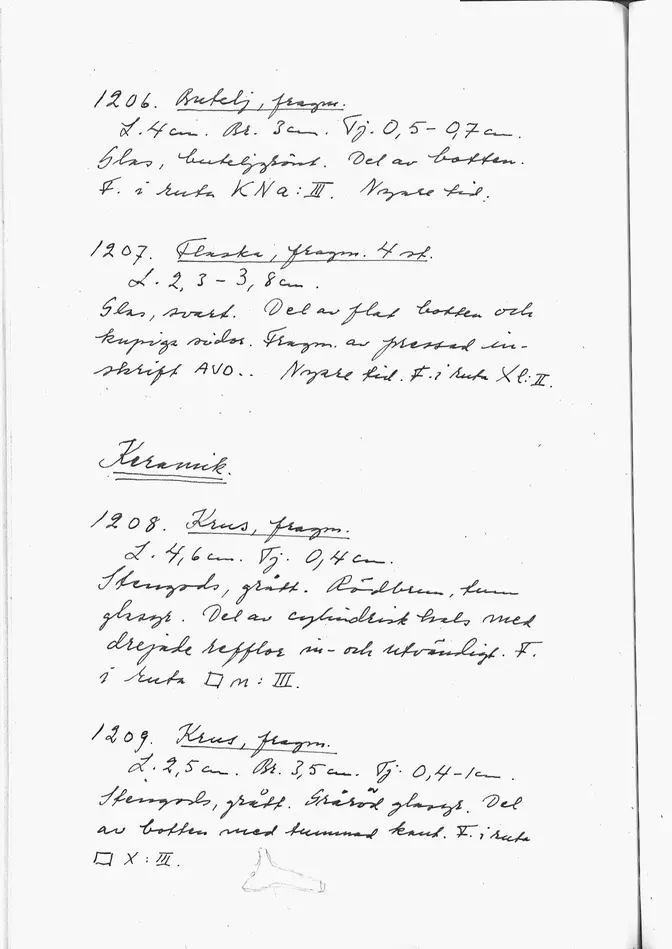 1206. Butelj, fragm.
L. 4 cm. Br. 3 cm. Tj. 0,5 – 0,7 cm.
Glas, buteljgrönt. Del av botten.
F. i ruta KNa: III. Nyare tid.
1207. Flaska, fragm. 4 st.
L. 2,3 – 3,8 cm.
Glas, svart. Del av flat botten och
kupiga sidor. Fragm. av pressad in-
skrift AVO.. Nyare tid. F. i ruta Xl: II.
Keramik.
1208. Krus, fragm.
L. 4,6 cm. Tj. 0,4 cm.
Stengods, grått. Rödbrun, tunn
glasyr. Del av cylindrisk hals med
drejade refflor in- och utvändigt. F.
i ruta □ n: III.
1209. Krus, fragm.
L. 2,5 cm. Br. 3,5 cm. Tj. 0,4–1 cm.
Stengods, grått. Gråröd glasyr. Del
av botten med tummad kant. F. i ruta
□ X: III.